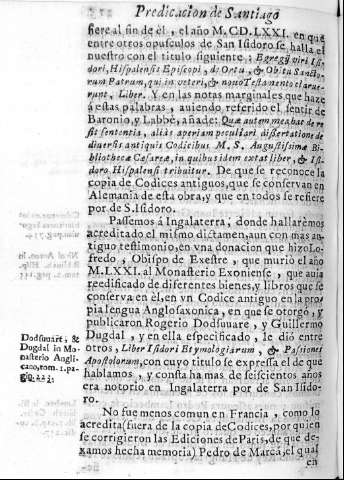 Predicacion de Santiago
fiere al fin de él, el año M.CD.LXXI. en que
entre otros opusculos de San Isidoro se halla el
nuestro con el titulo siguiente: Egregij viri Isi-
dori, Hispalensis Episcopi, de Ortu, & Obitu Sancto-
rum Patrum, qui in veteri, & novo Testamento claruerunt,
Liber. Y en las notas marginales que haze
á estas palabras, aviendo referido el sentir de
Baronio, y Labbè, añade: Quæ autem mea hac de re
sit sententia, aliàs aperiam peculiari dissertatione de
diversis antiquis Codicibus M. S. Augustissimæ Bi-
bliothecæ Cæsareæ, in quibus idem extat liber, & Isi-
doro Hispalensi tribuitur. De que se reconoce la
copia de Codices antiguos, que se conservan en
Alemania de esta obra, y que en todos se refiere
por de S. Isidoro.
Passemos á Ingalaterra, donde hallarèmos
acreditado el mismo dictamen, aun con mas an-
tiguo testimonio, en vna donacion que hizo Lo-
fredo, Obispo de Exestre, que murió el año
M.LXXI. al Monasterio Exoniense, que avia
reedificado de diferentes bienes, y libros que se
conserva en él, en vn Codice antiguo en la pro-
pia lengua Anglosaxonica, en que se otorgó, y
publicaron Rogerio Dodsuuare, y Guillermo
Dugdal, y en ella especificado, le dió entre
otros, Liber Isidori Etymologiarum, & Passiones
Apostolorum, con cuyo titulo se expressa el de que
hablamos, y consta ha mas de seiscientos años
era notorio en Ingalaterra por de San Isido-
ro.
Dodsuuart, &
Dugdal in Mo-
nasterio Angli-
cano, tom. 1. pa-
gin. 223.
No fue menos comun en Francia, como lo
acredita (fuera de la copia de Codices, por quien
se corrigieron las Ediciones de Paris, de que de-
xamos hecha memoria) Pedro de Marca, el qual
en